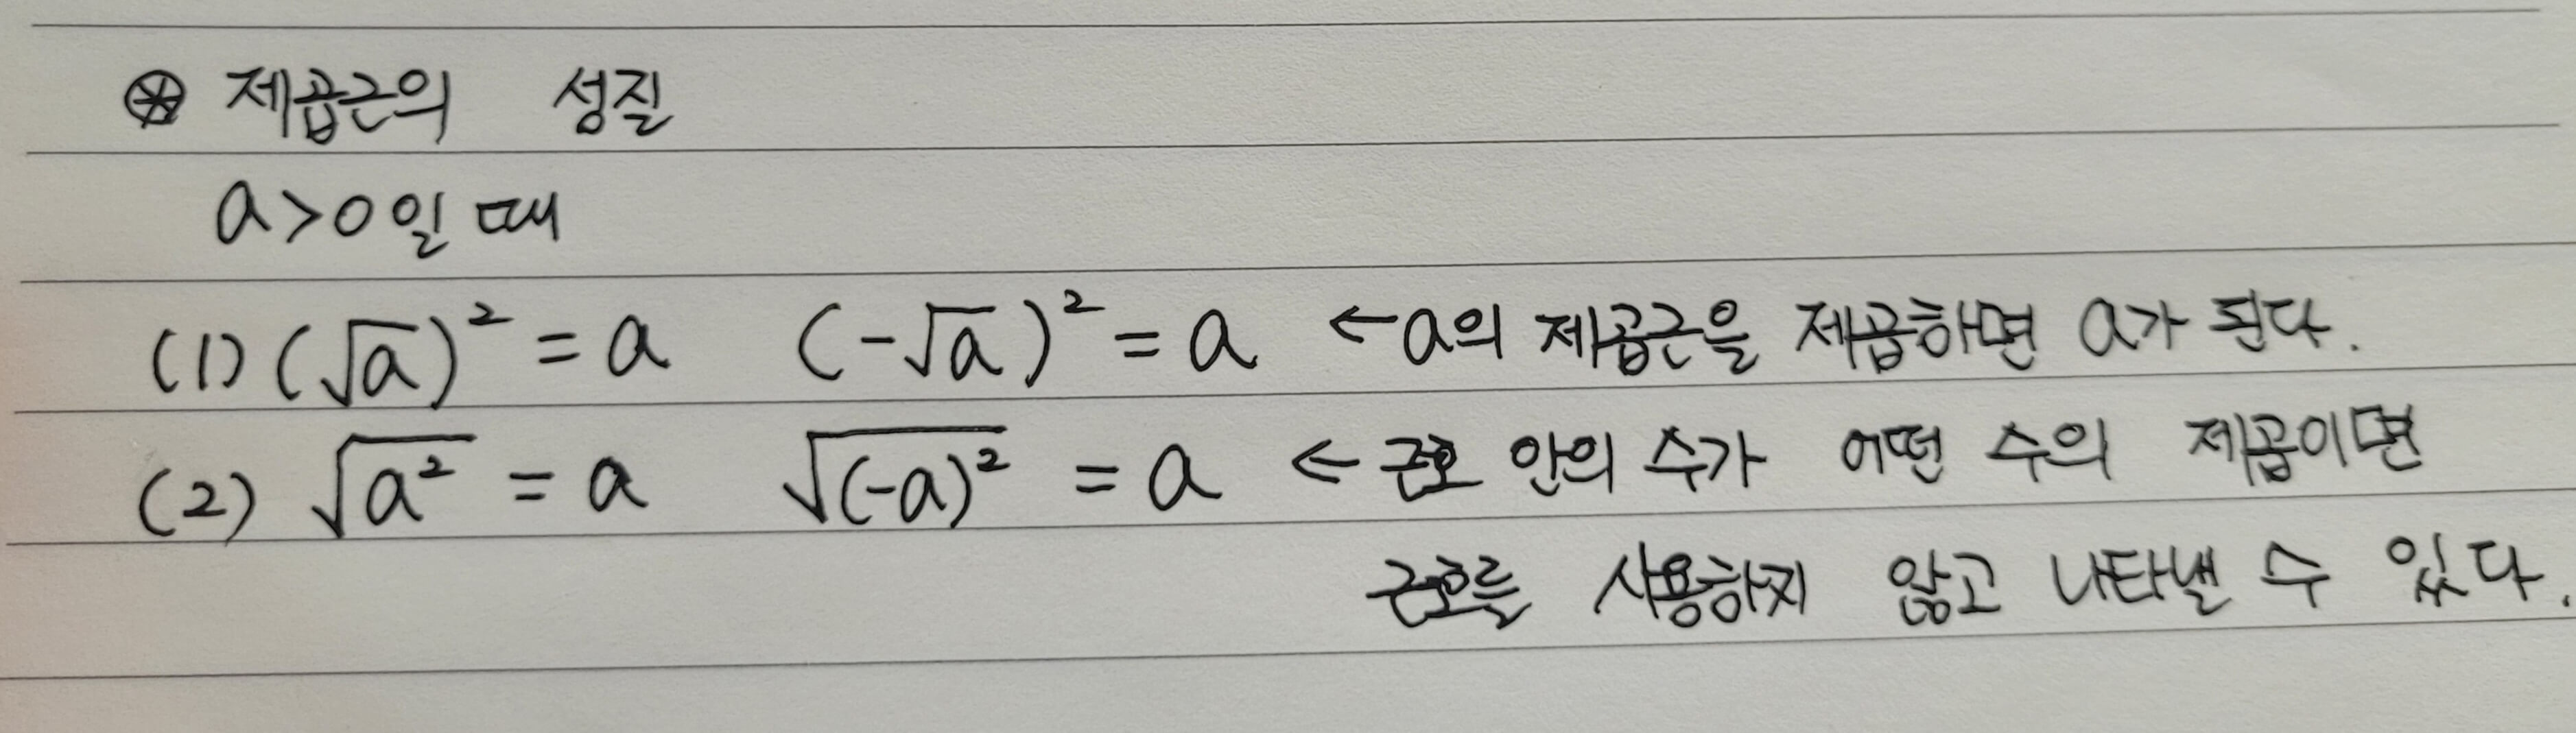 ⊛ 제곱근의 성질
a>0일 때
(1) (√a)² = a (-√a)² = a ←a의 제곱근을 제곱하면 a가 된다.
(2) √a² = a √(-a)² = a ← 근호 안의 수가 어떤 수의 제곱이면
근호를 사용하지 않고 나타낼 수 있다.